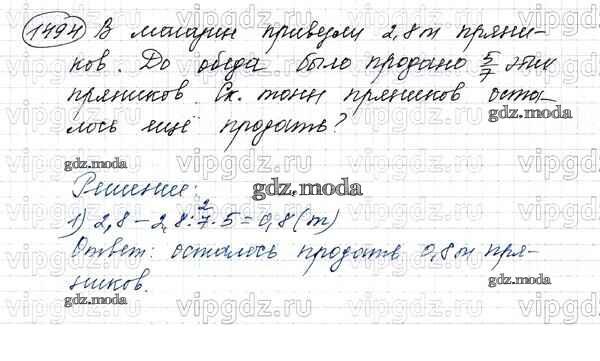 1494 В магазин привезли 2,8 т пряни-
ков. До обеда было продано 5/7 этих
пряников. Ск. тонн пряников оста-
лось ещё продать?
gdz.moda
gdz.moda
Решение:
gdz.moda
1) 2,8 - 2,8 : 7 · 5 = 0,8 (т)
Ответ: осталось продать 0,8 т пря-
ников.
gdz.moda
gdz.moda
vipgdz.ru